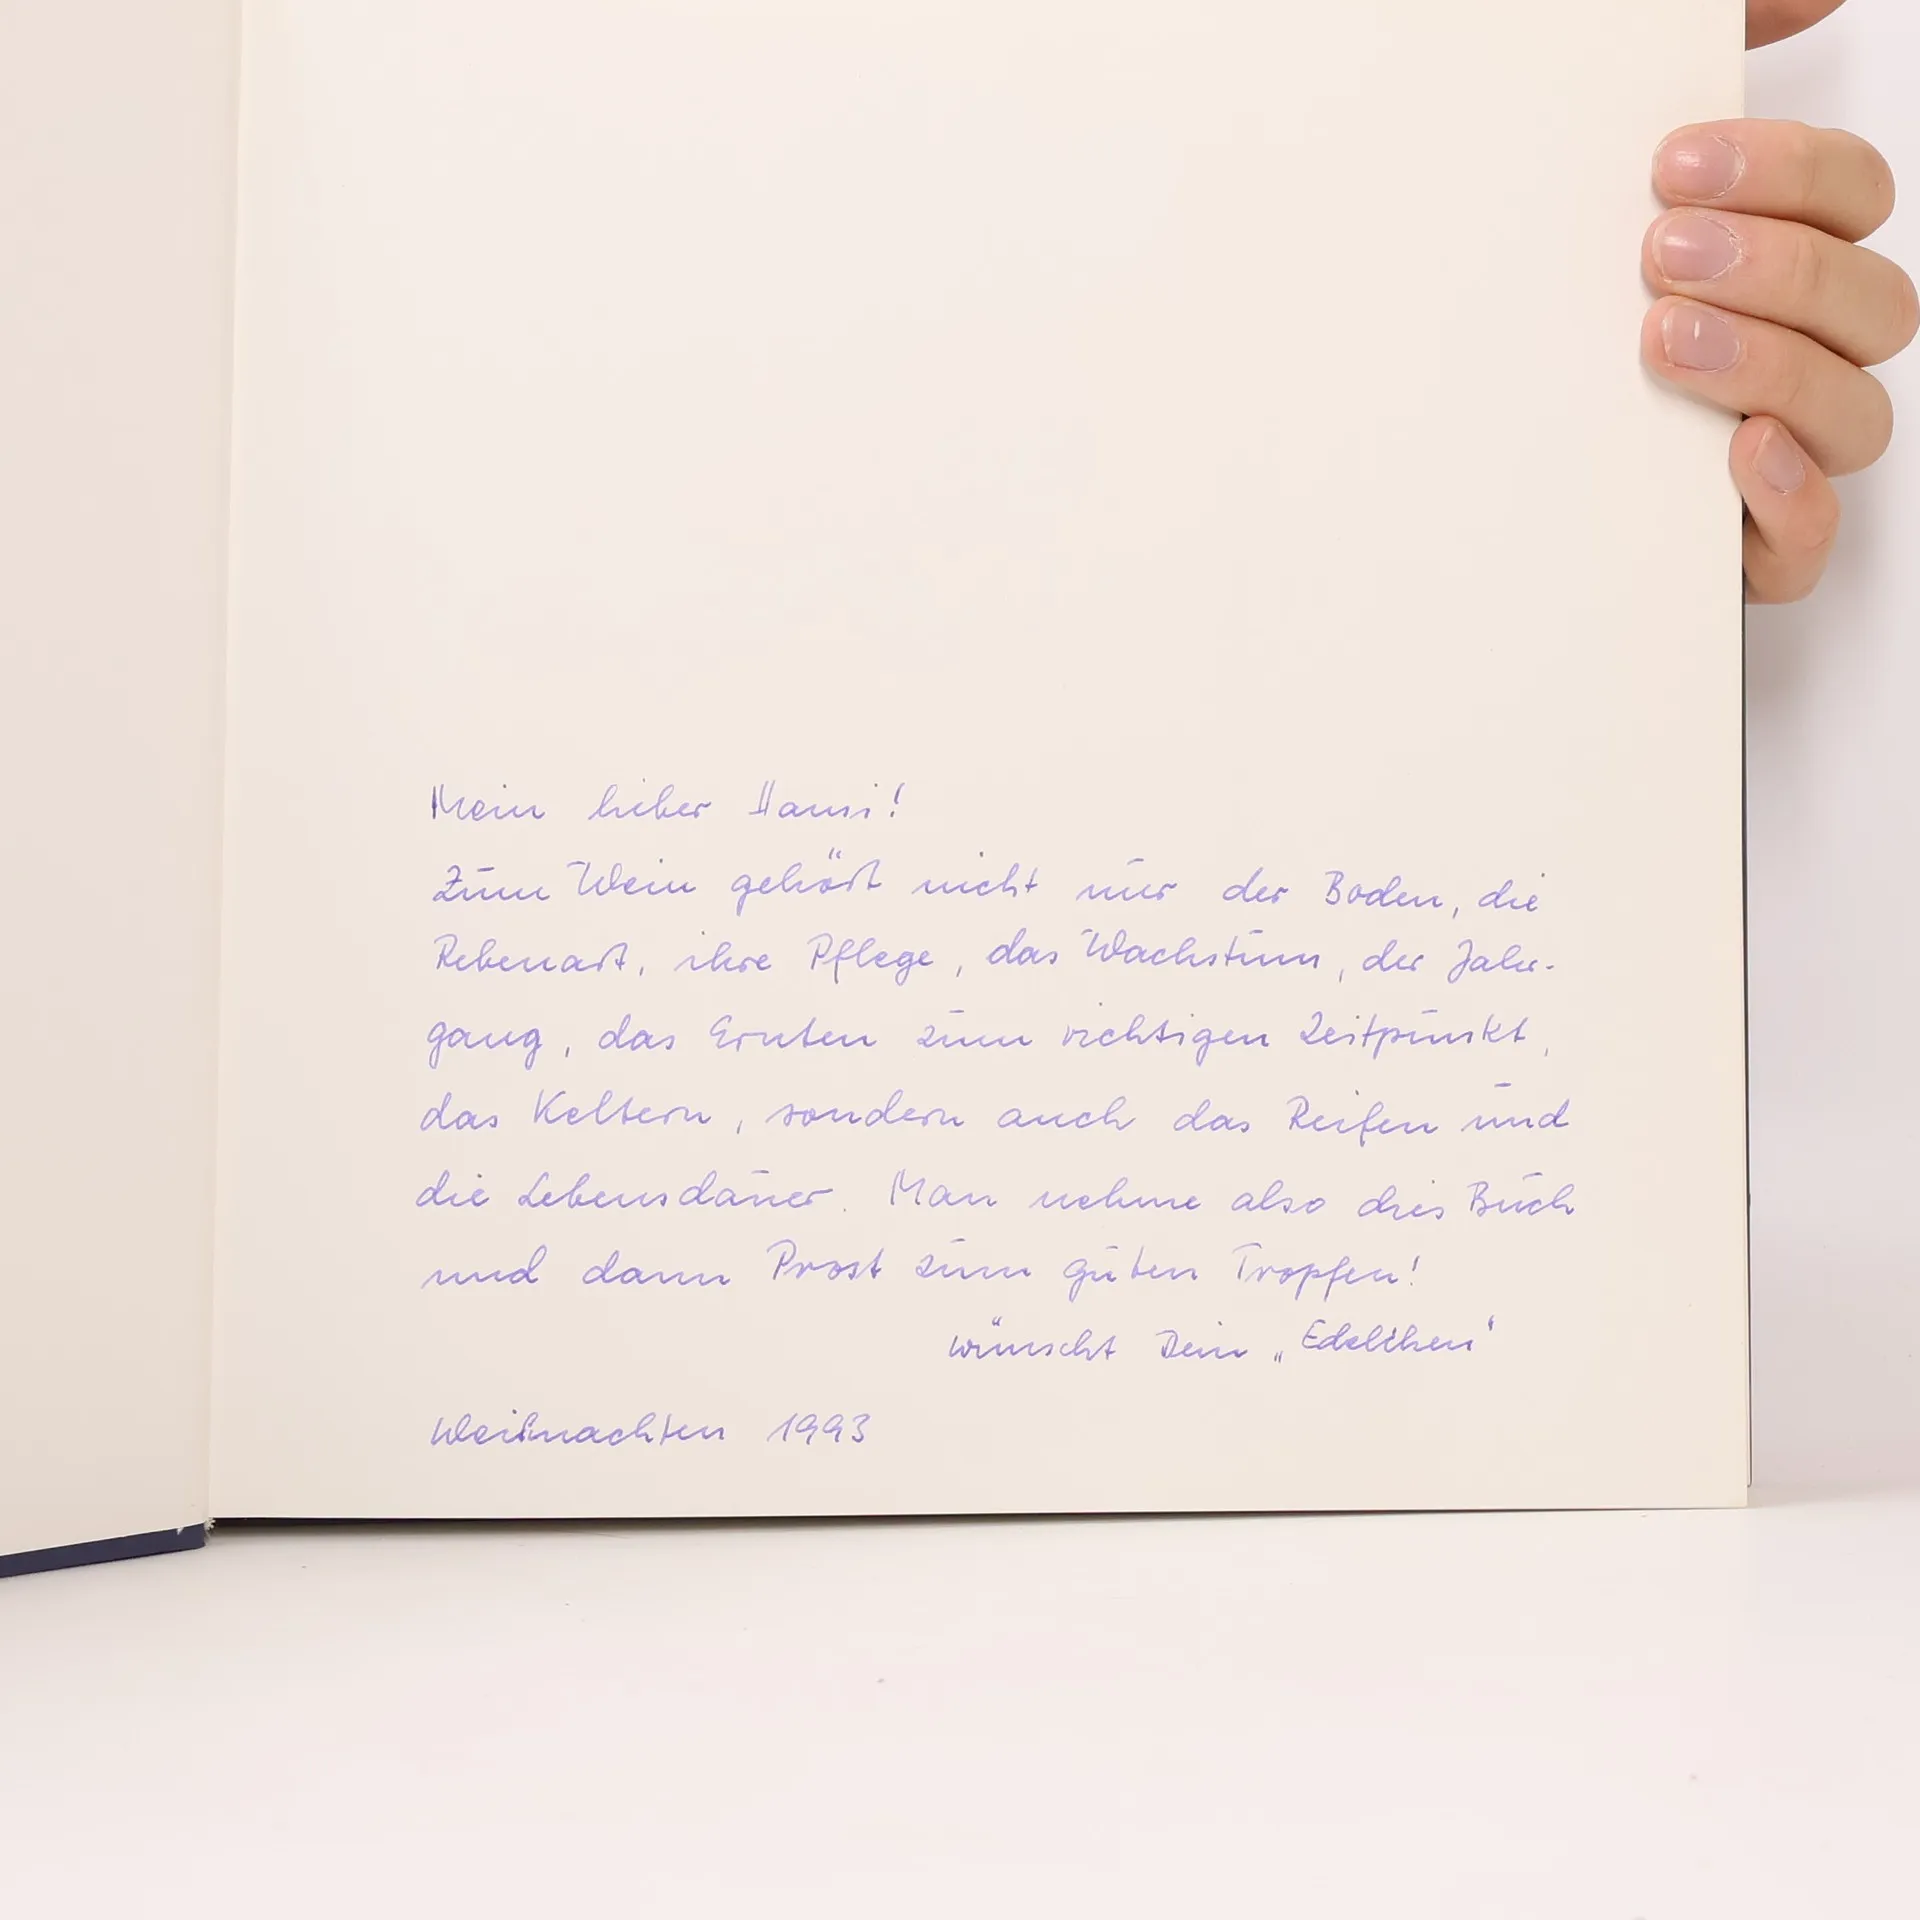 Mein lieber Hansi!
Zum Wein gehört nicht nur der Boden, die
Rebenart, ihre Pflege, das Wachstum, der Jahr-
gang, das Ernten zum richtigen Zeitpunkt,
das Keltern, sondern auch das Reifen und
die Lebensdauer. Man nehme also dies Buch
und dann Prost zum guten Tropfen!
wünscht Dein „Edelchen“
Weihnachten 1993